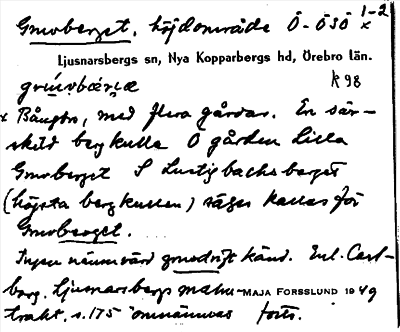 Gruvberget, höjdområde Ö - ÖSÖ 1-2 x
Ljusnarsbergs sn, Nya Kopparbergs hd, Örebro län.
K 98
x Bångbro, med flera gårdar. En sär-
skild bergkulle Ö gården Lilla
Gruvberget S Lustigbacksberget
(högsta bergkullen) säges kallas för
Gruvberget.
Ingen nämnvärd gruvdrift känd. Enl. Carl-
berg, Ljusnarsbergs malm- MAJA FORSSLUND 1949
trakt, s. 175 omnämnes forts.